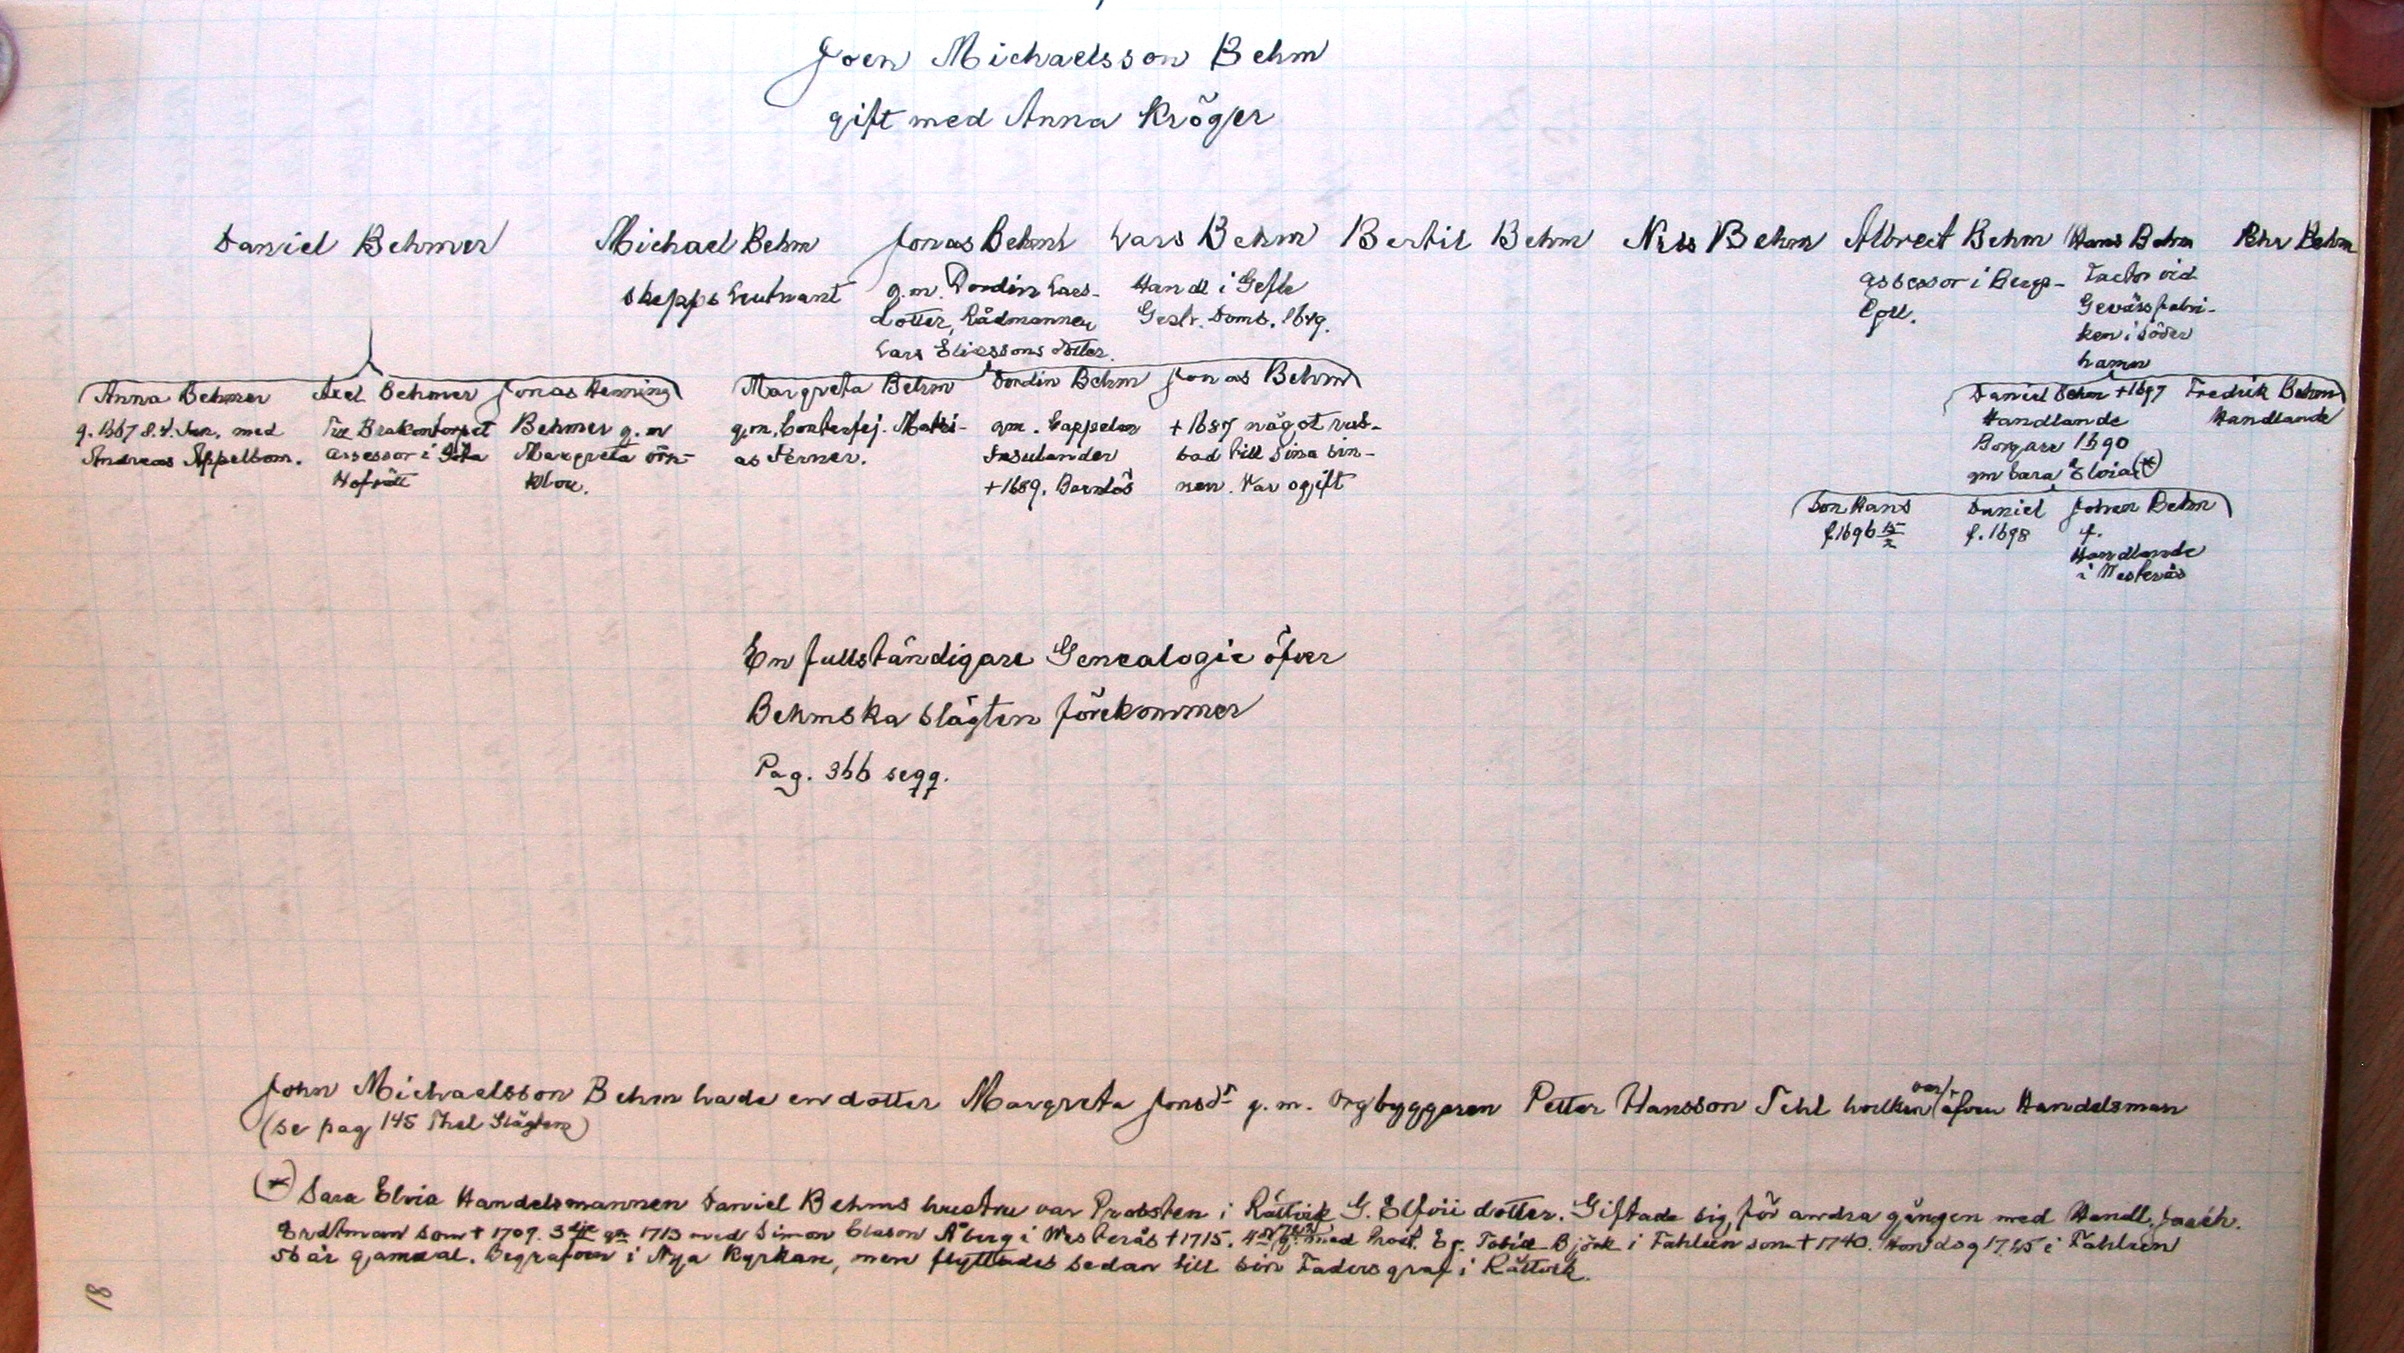 Joen Michaelsson Behm
gift med Anna Kröger
Daniel Behmer
Michael Behm
Skepps Leutnant
Jonas Behm
g.m. Dordin Lars-
dotter, Rådmannen
Lars Ericssons dotter.
Lars Behm
Handl i Gefle
Gestr. Domb. 1649.
Bertil Behm
Nils Behm
Albrect Behm
Assessor i Bergs-
Coll.
Hans Behm
Factor vid
Gevärsfabri-
ken i Söder
hamn
Pehr Behm
Anna Behmer
g. 1667 8.4. Jan. med
Andreas Appelbom.
Axel Behmer
Assessor i Göta
Hofrätt
Jonas Henning
Behmer g.m
Margreta Örn-
klou.
Margreta Behm
g.m. Conterfej. Matti-
as Ferner.
Dordin Behm
gm. Cappelan
Insulander
+1689. Barnlös
Jonas Behm
+1687 något rub-
bad till sina sin-
nen. Var ogift
Daniel Behm +1697
Handlande
Borgare 1690
gm Sara Elvia (*)
Fredrik Behm
Handlande
Son Hans
f. 1696
Daniel
f. 1698
Johan Behm
f.
Handlande
i Westerås
En fullständigare Genealogie öfver
Behmska Slägten förekommer
Pag. 366 seqq.
John Michaelsson Behm hade en dotter Margreta Jonsdr g.m. Orgbyggaren Petter Hansson Tehl hvilken var äfven Handelsman
(se pag 145 Thel Slägten)
(*) Sara Elvia Handelsmannen Daniel Behms hustru var Probsten i Rättvik G. Elfvii dotter. Giftade sig för andra gången med Handl. Joach.
Erdtman som + 1709. 3dje gn 1713 med Simon Clason Åberg i Westerås +1715. med Tobia Björk i Fahlun som +1740. Hon dog 1745 i Fahlun
år gammal. Begrafven i Nya Kyrkan, men flyttades sedan till sin Faders graf i Rättvik.
18